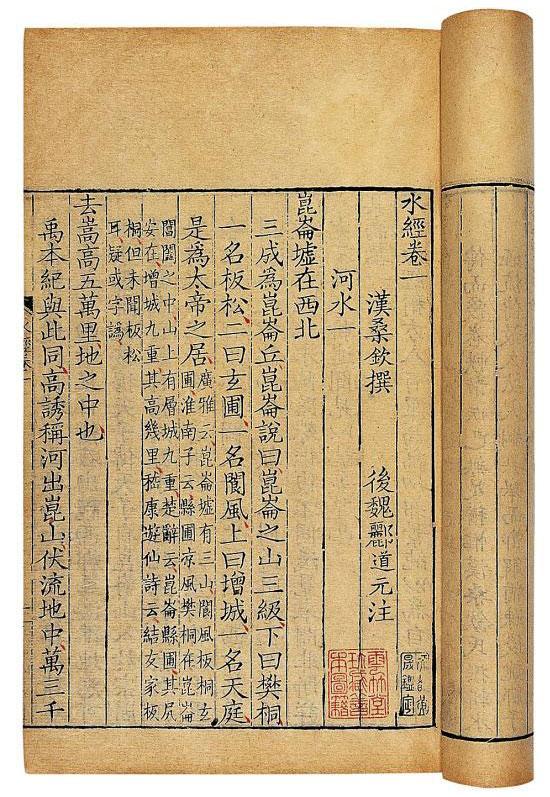 水經卷一
漢桑欽撰 後魏酈道元注
河水一
崑崙墟在西北
三成爲崑崙丘崑崙說曰崑崙之山三級下曰樊桐
一名板松二曰玄圃一名閬風上曰增城一名天庭
是爲太帝之居
廣雅云崑崙墟有三山閬風板桐玄
圃淮南子云縣圃凉風樊桐在崑崙
閶闔之中山上有層城九重楚辭云崑崙縣圃其尻
安在增城九重其高幾里嵇康遊仙詩云結友家板
桐但未聞板松
耳疑或字譌
去嵩高五萬里地之中也
禹本紀與此同高誘稱河出崑山伏流地中萬三千
珍藏善
本圖籍